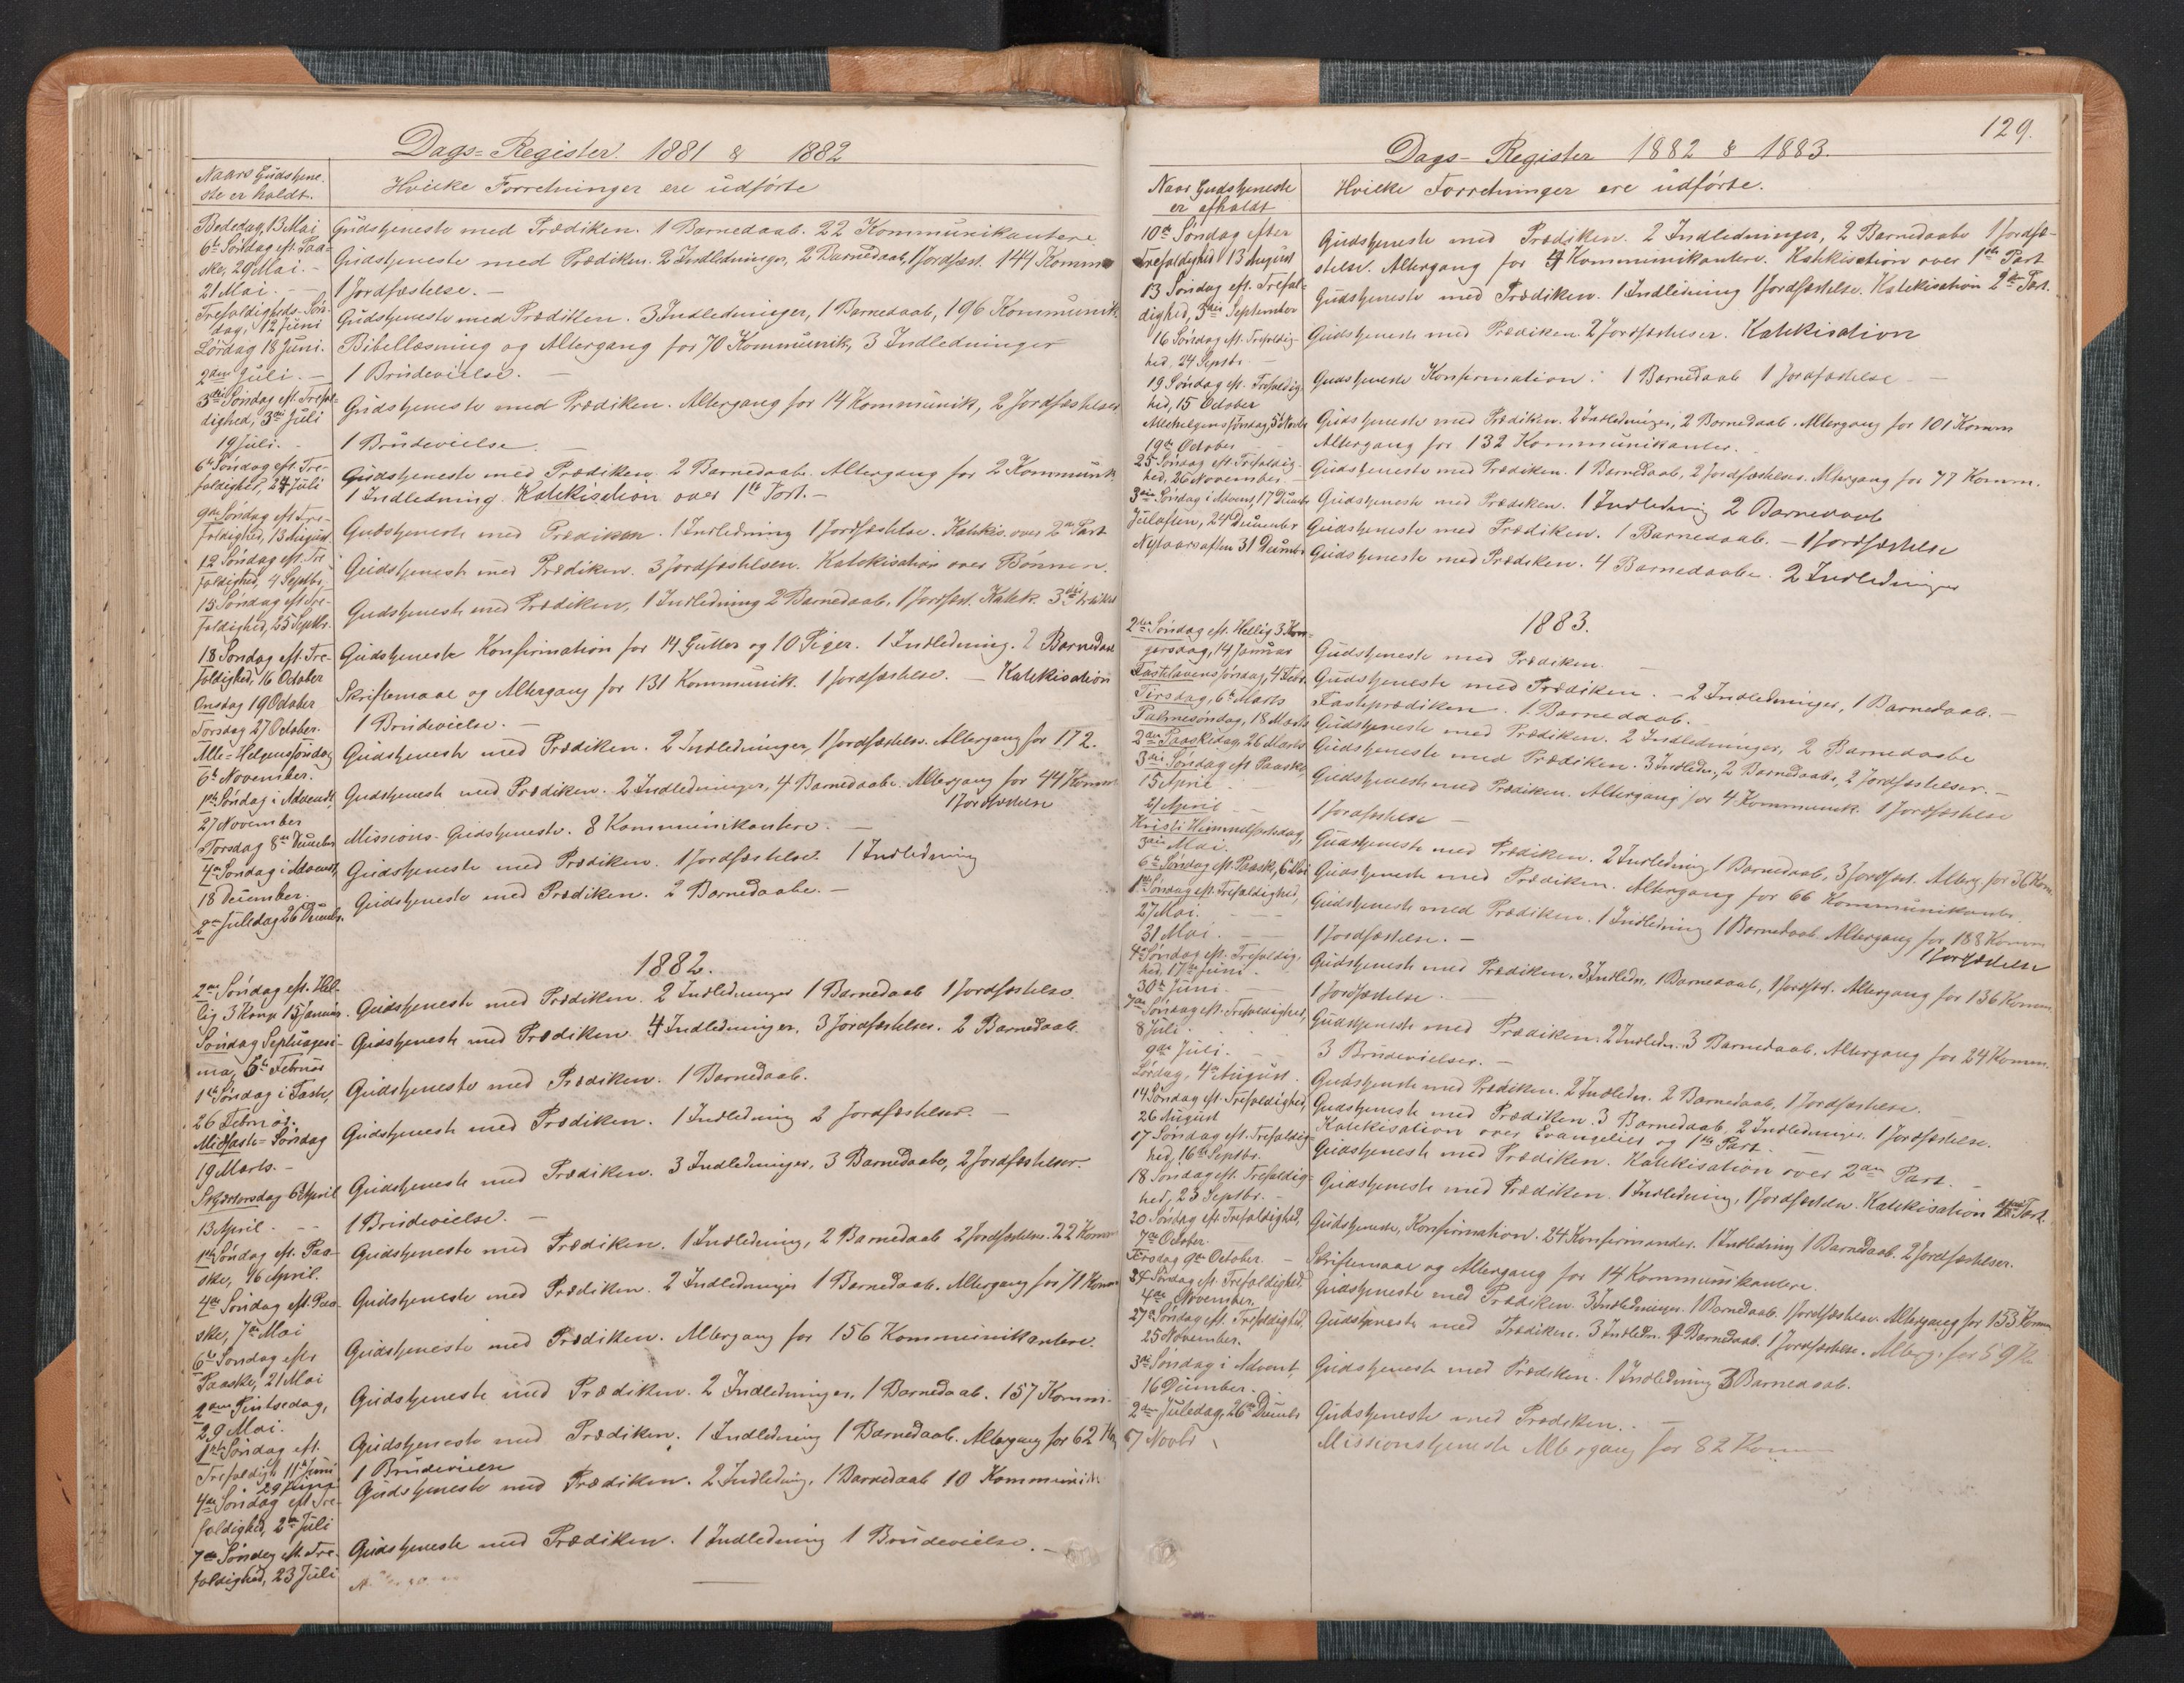 Dags-Register. 1881 & 1882
Naar Gudstjene-
ste er holdt.
Hvilke Forretninger ere udførte
Bededag, 13 Mai
Gudstjeneste med Prædiken. 1 Barnedaab. 22 Kommunikantere.
6te Søndag eft. Paa-
ske, 29 Mai. -
Gudstjeneste med Prædiken. 2 Indledninger, 2 Barnedaab, 1 Jordfæst. 144 Komm
21 Mai. -
1 Jordfæstelse. -
Trefoldigheds-Søn-
dag, 12 Juni
Gudstjeneste med Prædiken. 3 Indledninger, 1 Barnedaab, 196 Kommunik
Lørdag 18 Juni.
Bibellæsning og Altergang for 70 Kommunik, 3 Indledninger
2den Juli. -
1 Brudevielse. -
3die Søndag eft. Trefol-
dighed, 3die Juli
Gudstjeneste med Prædiken. Altergang for 14 Kommunik, 2 Jordfæstelser
19 Juli. -
1 Brudevielse -
6te Søndag eft. Tre-
foldighed, 24 Juli
Gudstjeneste med Prædiken. 2 Barnedaab. Altergang for 2 Kommunik.
1 Indledning. Katekisation over 1ste Part. -
9de Søndag eft. Tre-
foldighed, 13 August
Gudstjeneste med Prædiken. 1 Indledning 1 Jordfæstelse. Katekis. over 2den Part
12 Søndag eft. Tre-
foldighed, 4 Septbr.
Gudstjeneste med Prædiken. 3 Jordfæstelsen. Katekisation over Bønnen.
15 Søndag eft. Tre-
foldighed, 25 Septbr.
Gudstjeneste med Prædiken, 1 Indledning 2 Barnedaab. 1 Jordfæst. Katek. 3die Artikel
18 Søndag eft. Tre-
foldighed, 16 October
Gudstjeneste Konfirmation for 14 Gutter og 10 Piger. 1 Indledning. 2 Barnedaab
Onsdag 19 October
Skriftemaal og Altergang for 131 Kommunik. 1 Jordfæstelse. - Katekisation
Torsdag 27 October.
1 Brudevielse. -
Alle-Helgensøndag
6te November.
Gudstjeneste med Prædiken. 2 Indledninger, 1 Jordfæstelse. Altergang for 172.
1ste Søndag i Advendt,
27 November
Gudstjeneste med Prædiken. 2 Indledninger, 4 Barnedaabe. Altergang for 44 Komm
1 Jordfæstelse
Torsdag 8de December
Missions-Gudstjeneste. 8 Kommunikantere. -
4de Søndag i Advent,
18 December.
Gudstjeneste med Prædiken. 1 Jordfæstelse. 1 Indledning
2den Juledag 26 Decembr.
Gudstjeneste med Prædiken. 2 Barnedaabe. -
1882.
2den Søndag eft. Hel-
lig 3 Kong. 15 Januar.
Gudstjeneste med Prædiken. 2 Indledninger 1 Barnedaab 1 Jordfæstelse.
Søndag Septuagesi-
ma, 5te Februar
Gudstjeneste med Prædiken 4 Indledninger, 3 Jordfæstelser. 2 Barnedaab.
1ste Søndag i Faste,
26 Februar.
Gudstjeneste med Prædiken. 1 Barnedaab.
Midfaste-Søndag
19 Marts. -
Gudstjeneste med Prædiken. 1 Indledning 2 Jordfæstelser. -
Skjærtorsdag 6 April
Gudstjeneste med Prædiken. 3 Indledninger, 3 Barnedaabe, 2 Jordfæstelser.
13 April. - -
1 Brudevielse. -
1ste Søndag eft. Paa-
ske, 16 April.
Gudstjeneste med Prædiken. 1 Indledning, 2 Barnedaab 2 Jordfæstelser. 22 Komm
4de Søndag eft. Paa-
ske, 7de Mai
Gudstjeneste med Prædiken. 2 Indledninger 1 Barnedaab. Altergang for 71 Komm
6te Søndag efter
Paaske, 21 Mai
Gudstjeneste med Prædiken. Altergang for 156 Kommunikantere.
2den Pintsedag,
29 Mai.
Gudstjeneste med Prædiken. 2 Indledninger, 1 Barnedaab. 157 Komm.
1ste Søndag eft.
Trefoldigh. 11te Juni
Gudstjeneste med Prædiken. 1 Indledning 1 Barnedaab. Altergang for 62 K
29 Juni
1 Brudevielse
4de Søndag eft. Tre-
foldighed, 2den Juli
Gudstjeneste med Prædiken. 2 Indledning. 1 Barnedaab 10 Kommunik.
7de Søndag eft. Tre-
foldighed, 23 Juli
Gudstjeneste med Prædiken. 1 Indledning 1 Brudevielse. -
129.
Dags-Register 1882 & 1883.
Naar Gudstjeneste
er afholdt
Hvilke Forretninger ere udførte.
10de Søndag efter
Trefoldighed 13 August
Gudstjeneste med Prædiken. 2 Indledninger, 2 Barnedaabe 1 Jordfæ-
stelse. Altergang for 4 Kommunikantere. Katekisation over 1ste Part
13 Søndag eft. Trefol-
dighed, 3die September
Gudstjeneste med Prædiken. 1 Indledning 1 Jordfæstelse. Katekisation 2den Part.
16 Søndag eft. Trefoldig-
hed, 24 Septbr. -
Gudstjeneste med Prædiken. 2 Jordfæstelser. Katekisation
19 Søndag eft. Trefoldig-
hed, 15 October
Gudstjeneste Konfirmation. 1 Barnedaab 1 Jordfæstelse -
Allehelgens Søndag, 5 Novbr
Gudstjeneste med Prædiken. 2 Indledninger, 2 Barnedaab. Altergang for 101 Komm
19de October
Altergang for 132 Kommunikanter.
25 Søndag eft. Trefoldig-
hed, 26 November. -
Gudstjeneste med Prædiken. 1 Barnedaab, 2 Jordfæstelser. Altergang for 77 Komm.
3die Søndag i Advent, 17 Decembr
Gudstjeneste med Prædiken. 1 Indledning 2 Barnedaab
Juleaften, 24 December
Gudstjeneste med Prædiken. 1 Barnedaab. - 1 Jordfæstelse
Nytaarsaften 31 Decembr
Gudstjeneste med Prædiken. 4 Barnedaabe. 2 Indledninger
1883.
2den Søndag eft. Hellig 3 Kon-
gersdag, 14 Januar
Gudstjeneste med Prædiken. -
Fastelavens søndag, 4 Febr.
Gudstjeneste med Prædiken. - 2 Indledninger, 1 Barnedaab. -
Tirsdag, 6te Marts
Fasteprædiken. 1 Barnedaab. -
Palmesøndag, 18 Marts
Gudstjeneste med Prædiken. 2 Indledninger, 2 Barnedaabe
2den Paaskedag, 26 Marts
Gudstjeneste med Prædiken. 3 Indledn., 2 Barnedaab., 2 Jordfæstelser. -
3die Søndag eft. Paaske,
15 April -
Gudstjeneste med Prædiken. Altergang for 4 Kommunik. 1 Jordfæstelse
21 April - -
1 Jordfæstelse -
Kristi Himmelfartsdag,
3die Mai.
Gudstjeneste med Prædiken. 2 Indledning 1 Barnedaab, 3 Jordfæst. Alterg. for 36 Kom.
6te Søndag eft. Paaske, 6 Mai
Gudstjeneste med Prædiken. Altergang for 66 Kommunikantr.
1ste Søndag eft. Trefoldighed,
27 Mai. - -
Gudstjeneste med Prædiken. 1 Indledning 1 Barnedaab. Altergang for 188 Komm
1 Jordfæstelse
31 Mai. - -
1 Jordfæstelse. -
4de Søndag eft. Trefoldig-
hed, 17de Juni. -
Gudstjeneste med Prædiken, 3 Indledn, 1 Barnedaab, 1 Jordfæst. Altergang for 136 Komm.
30te Juni. -
1 Jordfæstelse. -
7de Søndag eft. Trefoldighed,
8 Juli. -
Gudstjeneste med Prædiken. 2 Indledn. 3 Barnedaab. Altergang for 24 Komm.
9de Juli. -
3 Brudevielser. -
Lørdag, 4de August.
Gudstjeneste med Prædiken. 2 Indledn. 2 Barnedaab, 1 Jordfæstelse. -
14 Søndag eft. Trefoldighed,
26 August
Gudstjeneste med Prædiken. 3 Barnedaab, 2 Indledninger. 1 Jordfæstelse.
Katekisation over Evangeliet og 1ste Part.
17 Søndag eft. Trefoldig-
hed, 16te Septbr.
Gudstjeneste med Prædiken. Katekisation over 2den Part. -
18 Søndag eft. Trefoldig-
hed, 23 Septbr. -
Gudstjeneste med Prædiken. 1 Indledning, 1 Jordfæstelse. Katekisation Part.
20 Søndag eft. Trefoldighed,
7de October.
Gudstjeneste, Konfirmation. 24 Konfirmander. 1 Indledning 1 Barnedaab. 2 Jordfæstelser.
Tirsdag 9de October. -
Skriftemaal og Altergang for 14 Kommunikantere.
24 Søndag eft. Trefoldighed,
4de November.
Gudstjeneste med Prædiken. 3 Indledninger. 1 Barnedaab. 1 Jordfæstelse. Altergang for 153 Komm
27de Søndag eft. Trefoldighed,
25 November.
Gudstjeneste med Prædiken. 3 Indledn. Barnedaab. 1 Jordfæstelse. Alterg. for 59 K
3die Søndag i Advent,
16 December. -
Gudstjeneste med Prædiken. 1 Indledning 3 Barnedaab.
2den Juledag, 26de Decembr
Gudstjeneste med Prædiken. -
7 Novbr
Missionstjeneste Altergang for 82 Kom